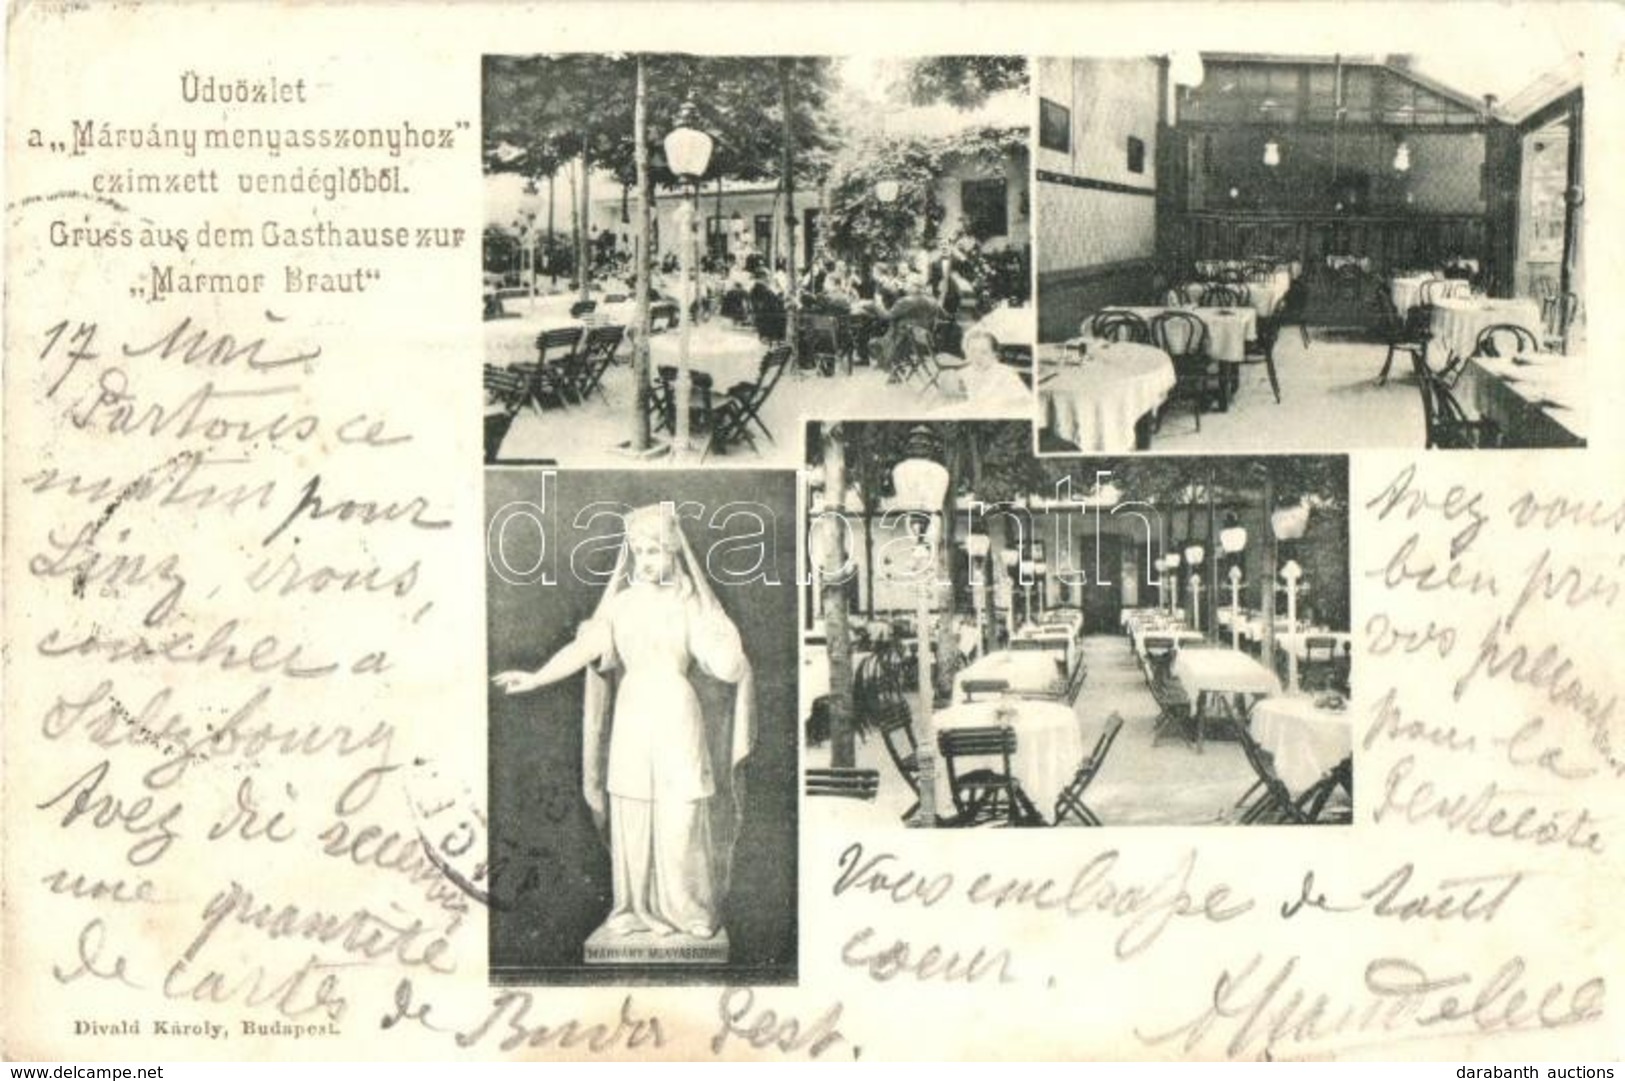 Üdvözlet
a „Márvány menyasszonyhoz”
czimzett vendéglőből.
Gruss aus dem Gasthause zur
„Marmor Braut“
17 Mai
Partons ce
matin pour
Linz, irons,
coucher a
Salzbourg
Avez dû recevoir
une quantité
de cartes de Buda Pest.
Avez vous
bien pris
vos precautions
pour la
Pentecôte
Vous embrasse de tout
coeur.
MÁRVÁNY MENYASSZONY
Divald Károly, Budapest.
darabanth
darabanth auctions